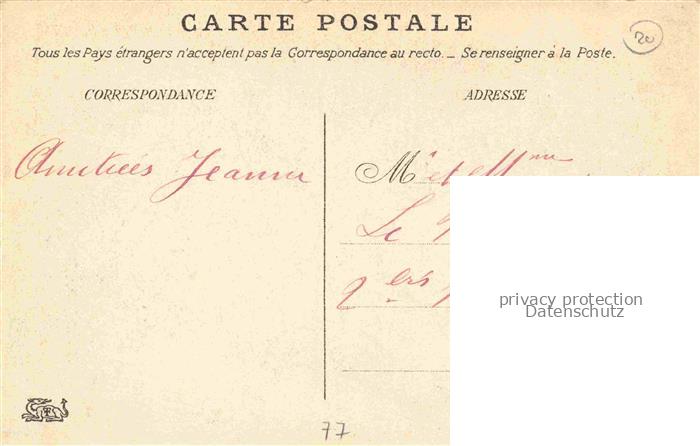 CARTE POSTALE
20
Tous les Pays étrangers n'acceptent pas la Correspondance au recto. _ Se renseigner à la Poste.
CORRESPONDANCE
ADRESSE
Amitiées Jeanne
Mr et Mme
Le
privacy protection
Datenschutz
77